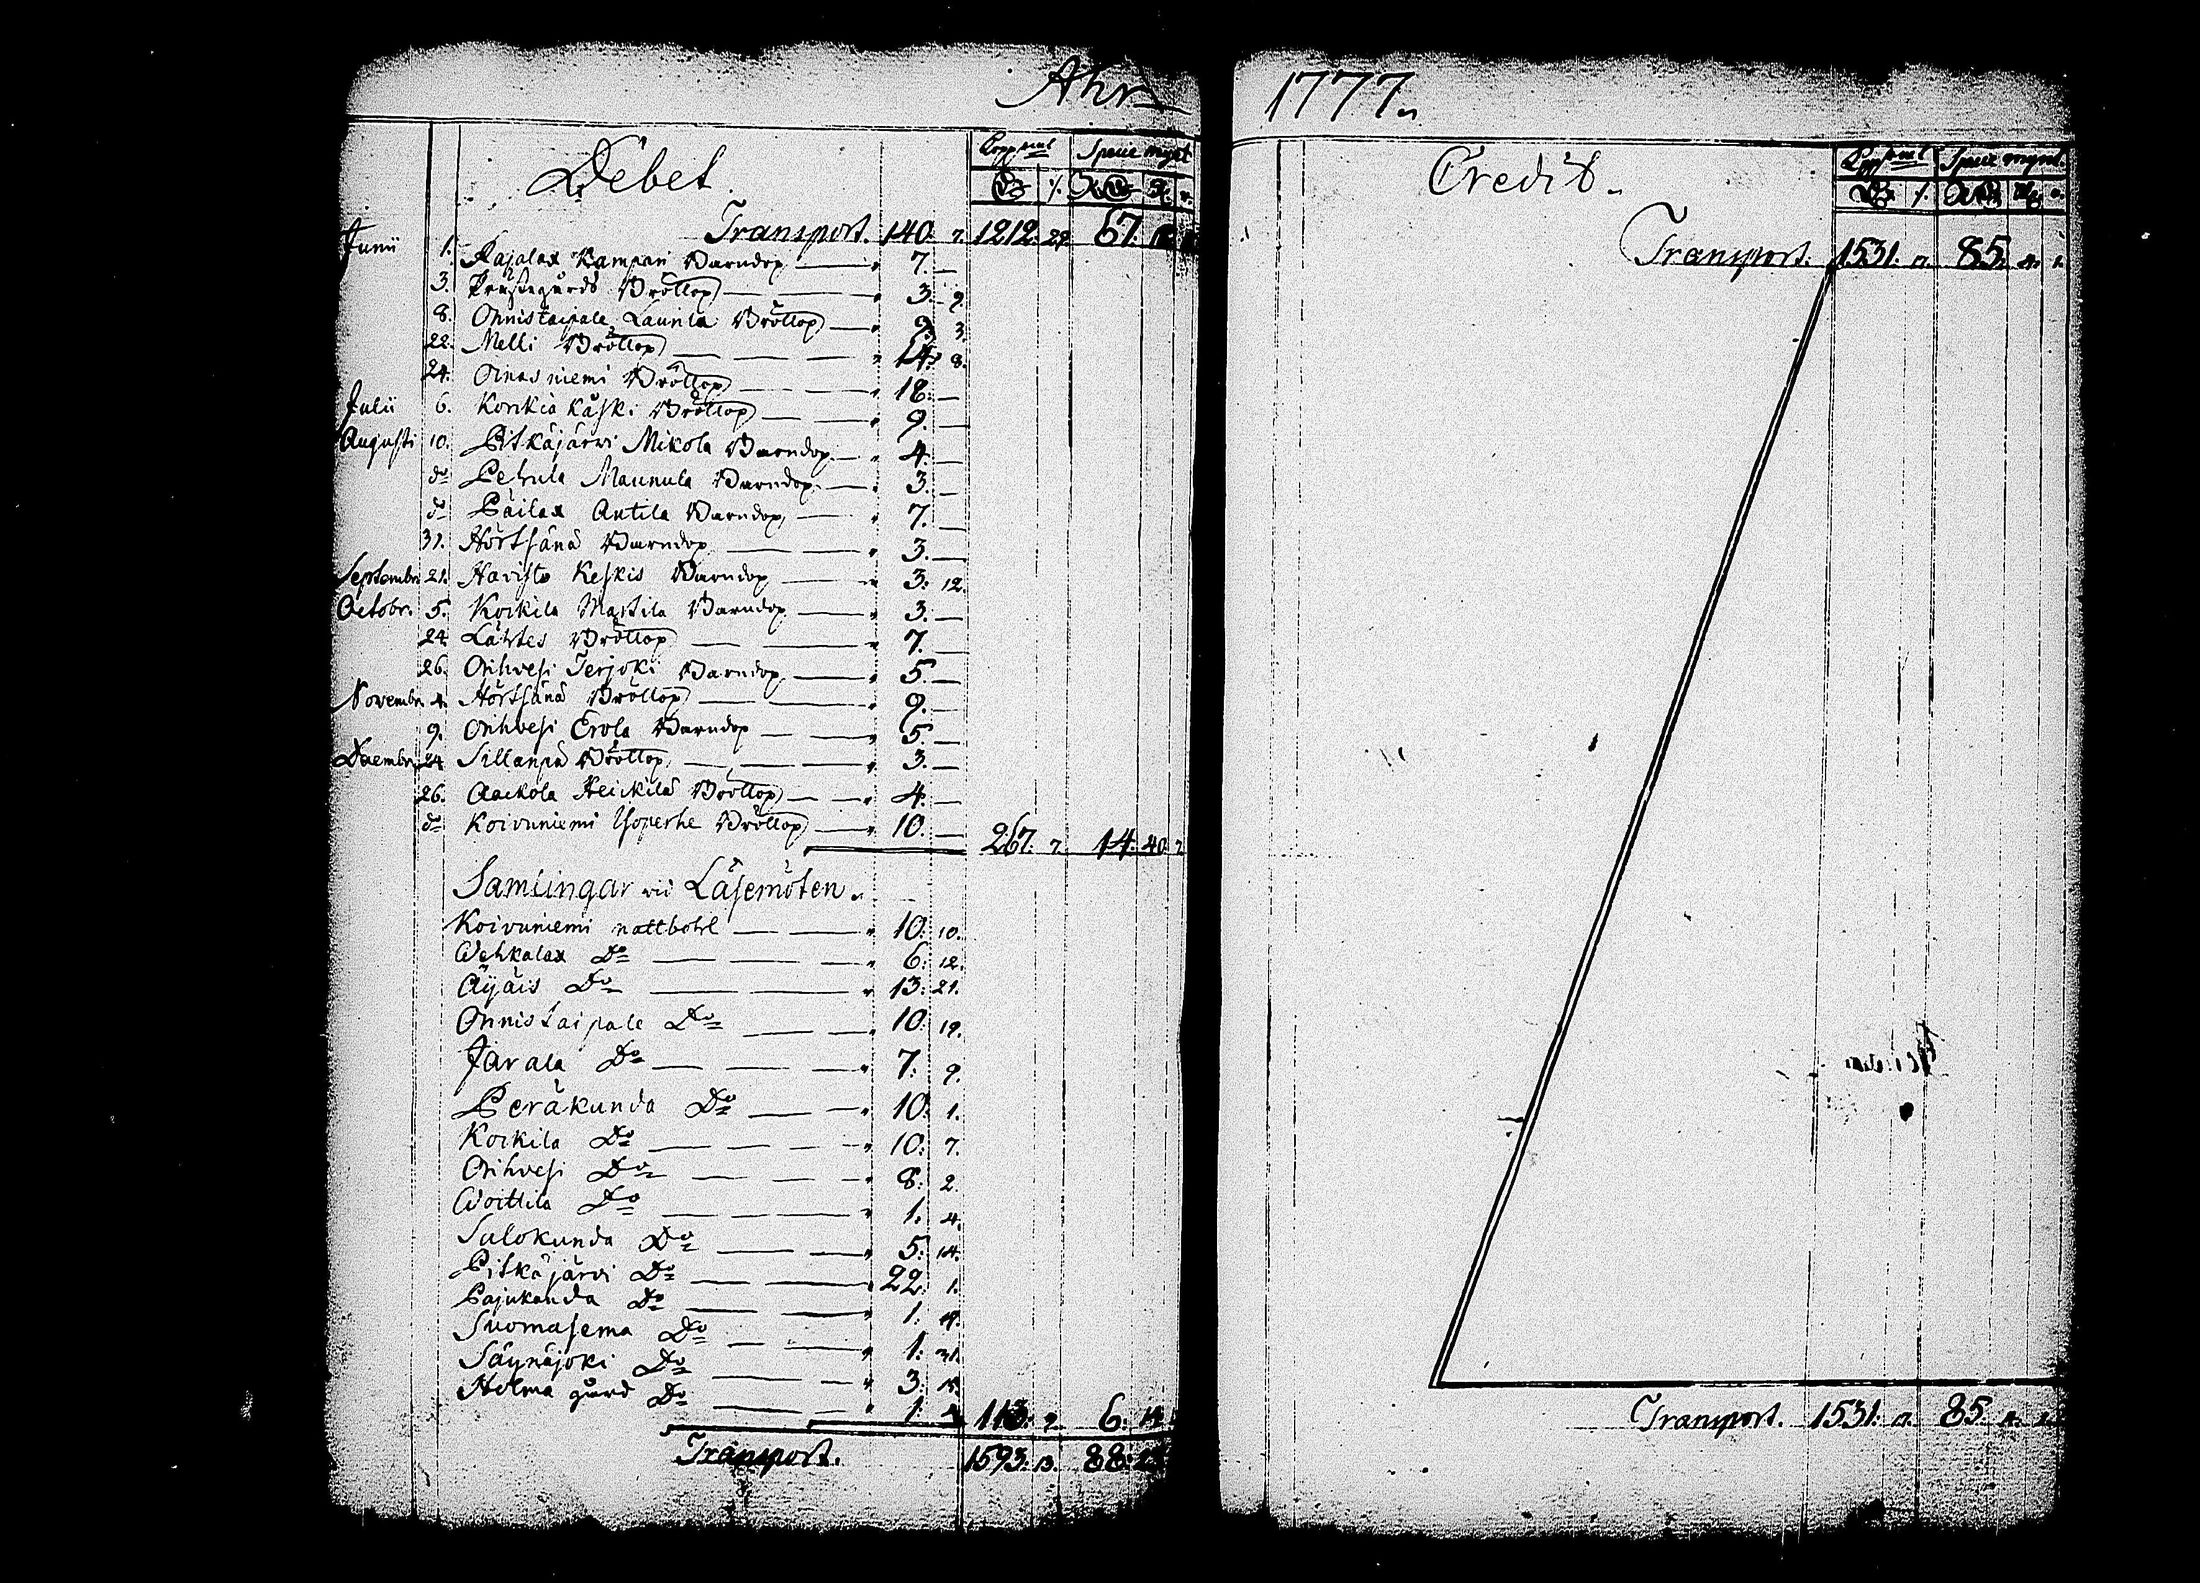 Åhr
Debet.
Kopp. mt Specie mynt
Transport. 140. 7. 1212. 29. 67.
Junii 1. Rajalax Kampari Barndop 7. —
3. Prästegårds Bröllop 3. 9.
8. Onnistaipale Laurila Bröllop 9. 3.
22. Melli Bröllop 14. 8.
24. Oinasniemi Bröllop 18. —
Julii 6. Korkia Käski Bröllop 9. —
Augusti 10. Pitkäjärvi Mikola Barndop 4. —
do Pehula Maunula Barndop 3. —
do Päilax Antila Barndop 7. —
31. Hörtsänä Barndop 3. —
Septembr. 21. Havisto Keskis Barndop 3. 12.
Octobr. 5. Kockila Martila Barndop 3. —
24. Lähtes Bröllop 7. —
26. Orihvesi Terjoki Barndop 5. —
Novembr. 4. Hörtsänä Bröllop 9. —
9. Orihvesi Erola Barndop 5. —
Decembr. 24. Sillanpä Bröllop 3. —
26. Aackola Heickilä Bröllop 4. —
do Koivuniemi Isoperhe Bröllop 10. — 267. 7. 14. 40. 7.
Samlingar vid Läsemöten.
Koivuniemi nattbohl 10. 10.
Wehkalax Do 6. 12.
Äijäis Do 13. 21.
Onnistaipale Do 10. 19.
Jarala Do 7. 9.
Peräkunda Do 10. 1.
Kockila Do 10. 7.
Orihvesi Do 8. 2.
Woittila Do 1. 4.
Salokunda Do 5. 14.
Pitkäjärvi Do 22. 1.
Pajukanda Do 1.
Suomasema Do 1. 31.
Säynäjoki Do 3.
Holma gård Do 1. 113. 9. 6.
Transport. 1593. 13. 88.
1777.
Credit.
Kopp. mt Specie mynt.
Transport. 1531. 17. 85. 4. 1.
Transport. 1531. 17. 85. 4.